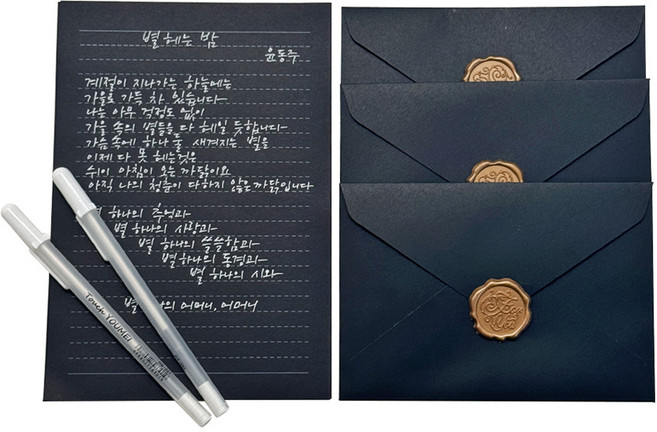 별 헤는 밤
윤동주
계절이 지나가는 하늘에는
가을로 가득 차 있습니다
나는 아무 걱정도 없이
가을 속의 별들을 다 헤일 듯합니다
가슴 속에 하나 둘 새겨지는 별을
이제 다 못 헤는것은
쉬이 아침이 오는 까닭이요
아직 나의 청춘이 다하지 않은 까닭입니다
별 하나의 추억과
별 하나의 사랑과
별 하나의 쓸쓸함과
별 하나의 동경과
별 하나의 시와
별 하나의 어머니, 어머니
Touch YOUMEI
For You